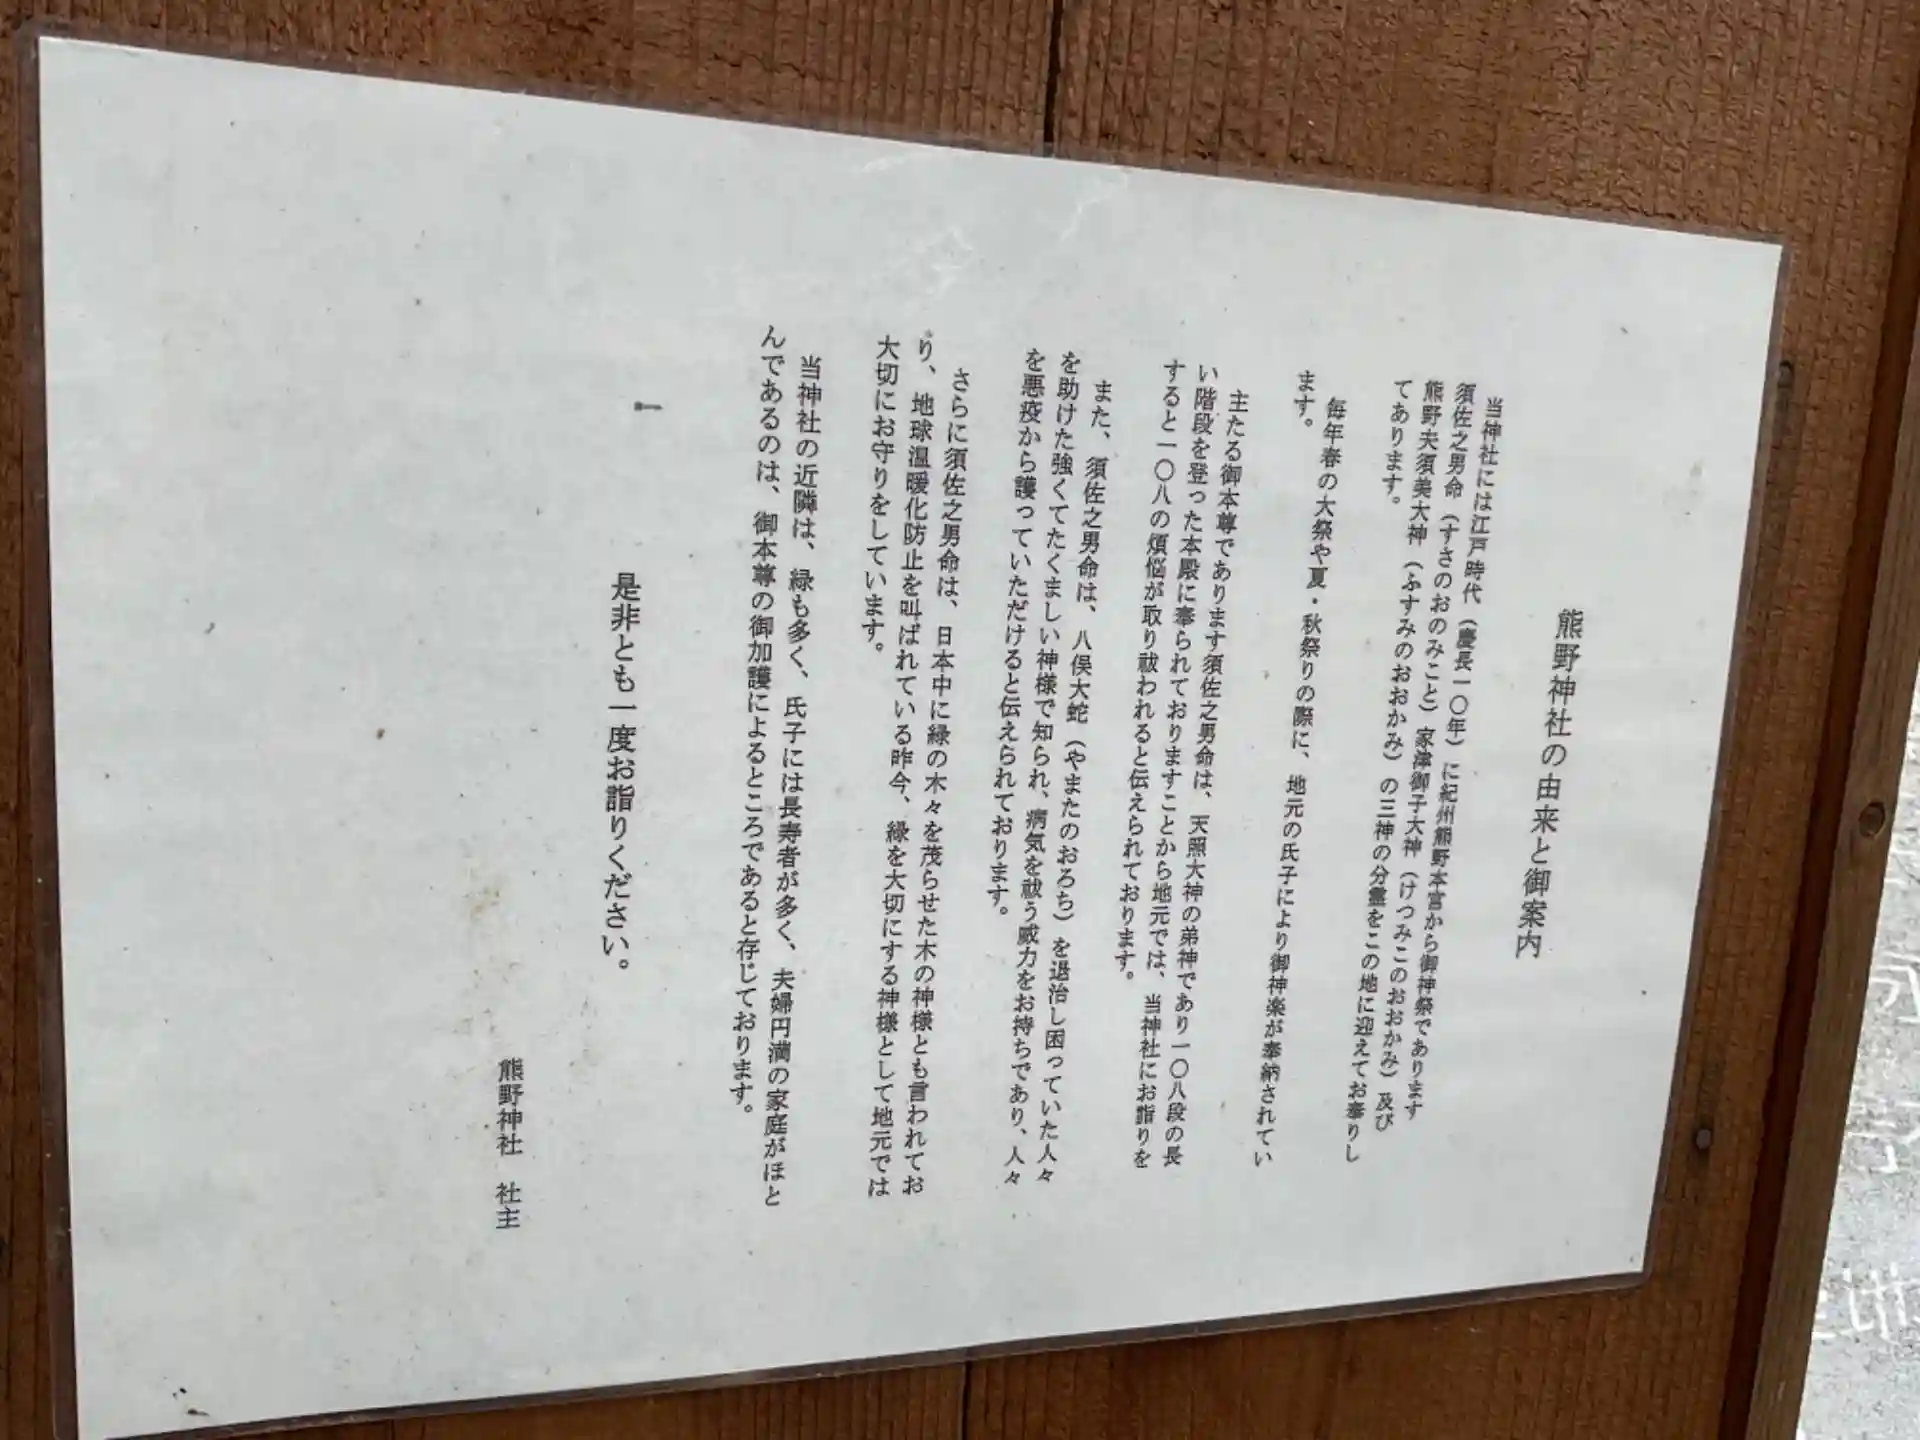 熊野神社の由来と御案内
当神社には江戸時代（慶長一〇年）に紀州熊野本宮から御神祭であります
須佐之男命（すさのおのみこと）家津御子大神（けつみこのおおかみ）及び
熊野夫須美大神（ふすみのおおかみ）の三神の分霊をこの地に迎えてお奉りし
てあります。
毎年春の大祭や夏・秋祭りの際に、地元の氏子により御神楽が奉納されてい
ます。
主たる御本尊であります須佐之男命は、天照大神の弟神であり一〇八段の長
い階段を登った本殿に奉られておりますことから地元では、当神社にお詣りを
すると一〇八の煩悩が取り祓われると伝えられております。
また、須佐之男命は、八俣大蛇（やまたのおろち）を退治し困っていた人々
を助けた強くてたくましい神様で知られ、病気を祓う威力をお持ちであり、人々
を悪疫から護っていただけると伝えられております。
さらに須佐之男命は、日本中に緑の木々を茂らせた木の神様とも言われてお
り、地球温暖化防止を叫ばれている昨今、緑を大切にする神様として地元では
大切にお守りをしています。
当神社の近隣は、緑も多く、氏子には長寿者が多く、夫婦円満の家庭がほと
んであるのは、御本尊の御加護によるところであると存じております。
是非とも一度お詣りください。
熊野神社　社主